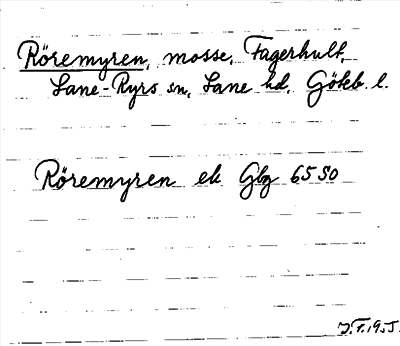 Röremyren, mosse, Fagerhult,
Lane-Ryrs sn, Lane hd, Göteb. l.
Röremyren ek Gbg 65 SO
J.F. 1955